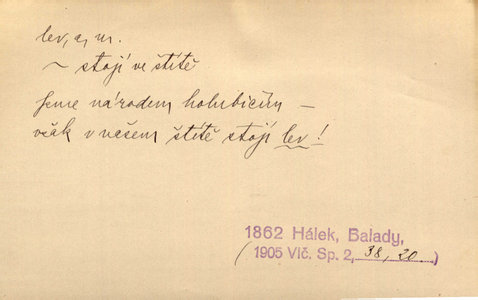 lev, a, m.
~ stojí ve štítě
jsme národem holubicím –
však v našem štítě stojí lev!
1862 Hálek, Balady,
(1905 Vlč. Sp. 2, 38, 20)